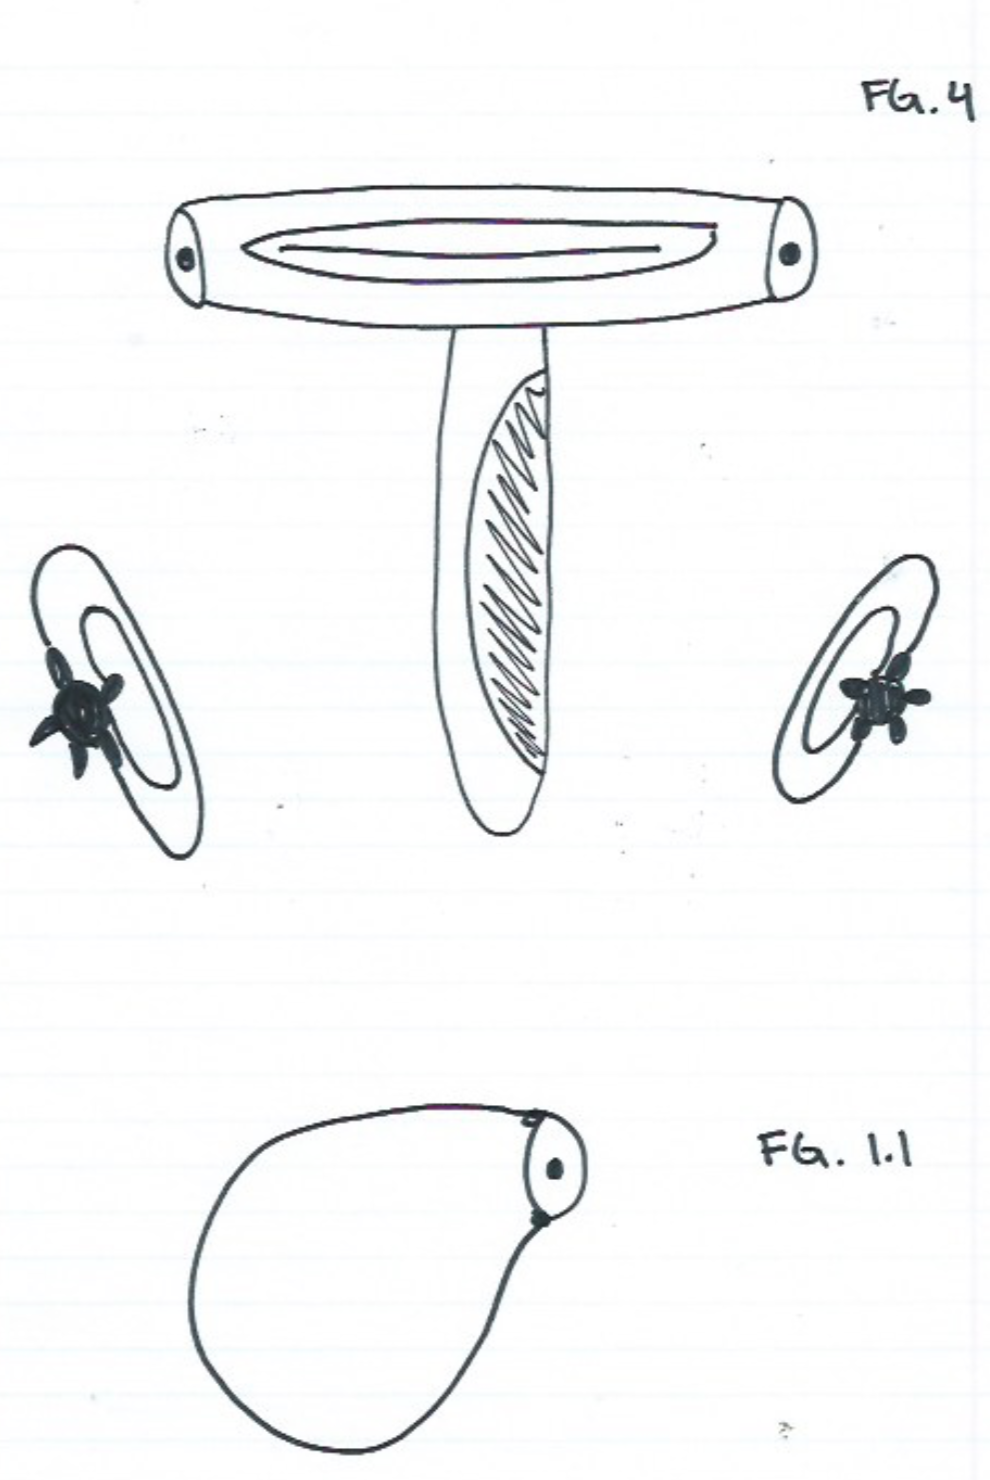 FG. 4
FG. 1.1